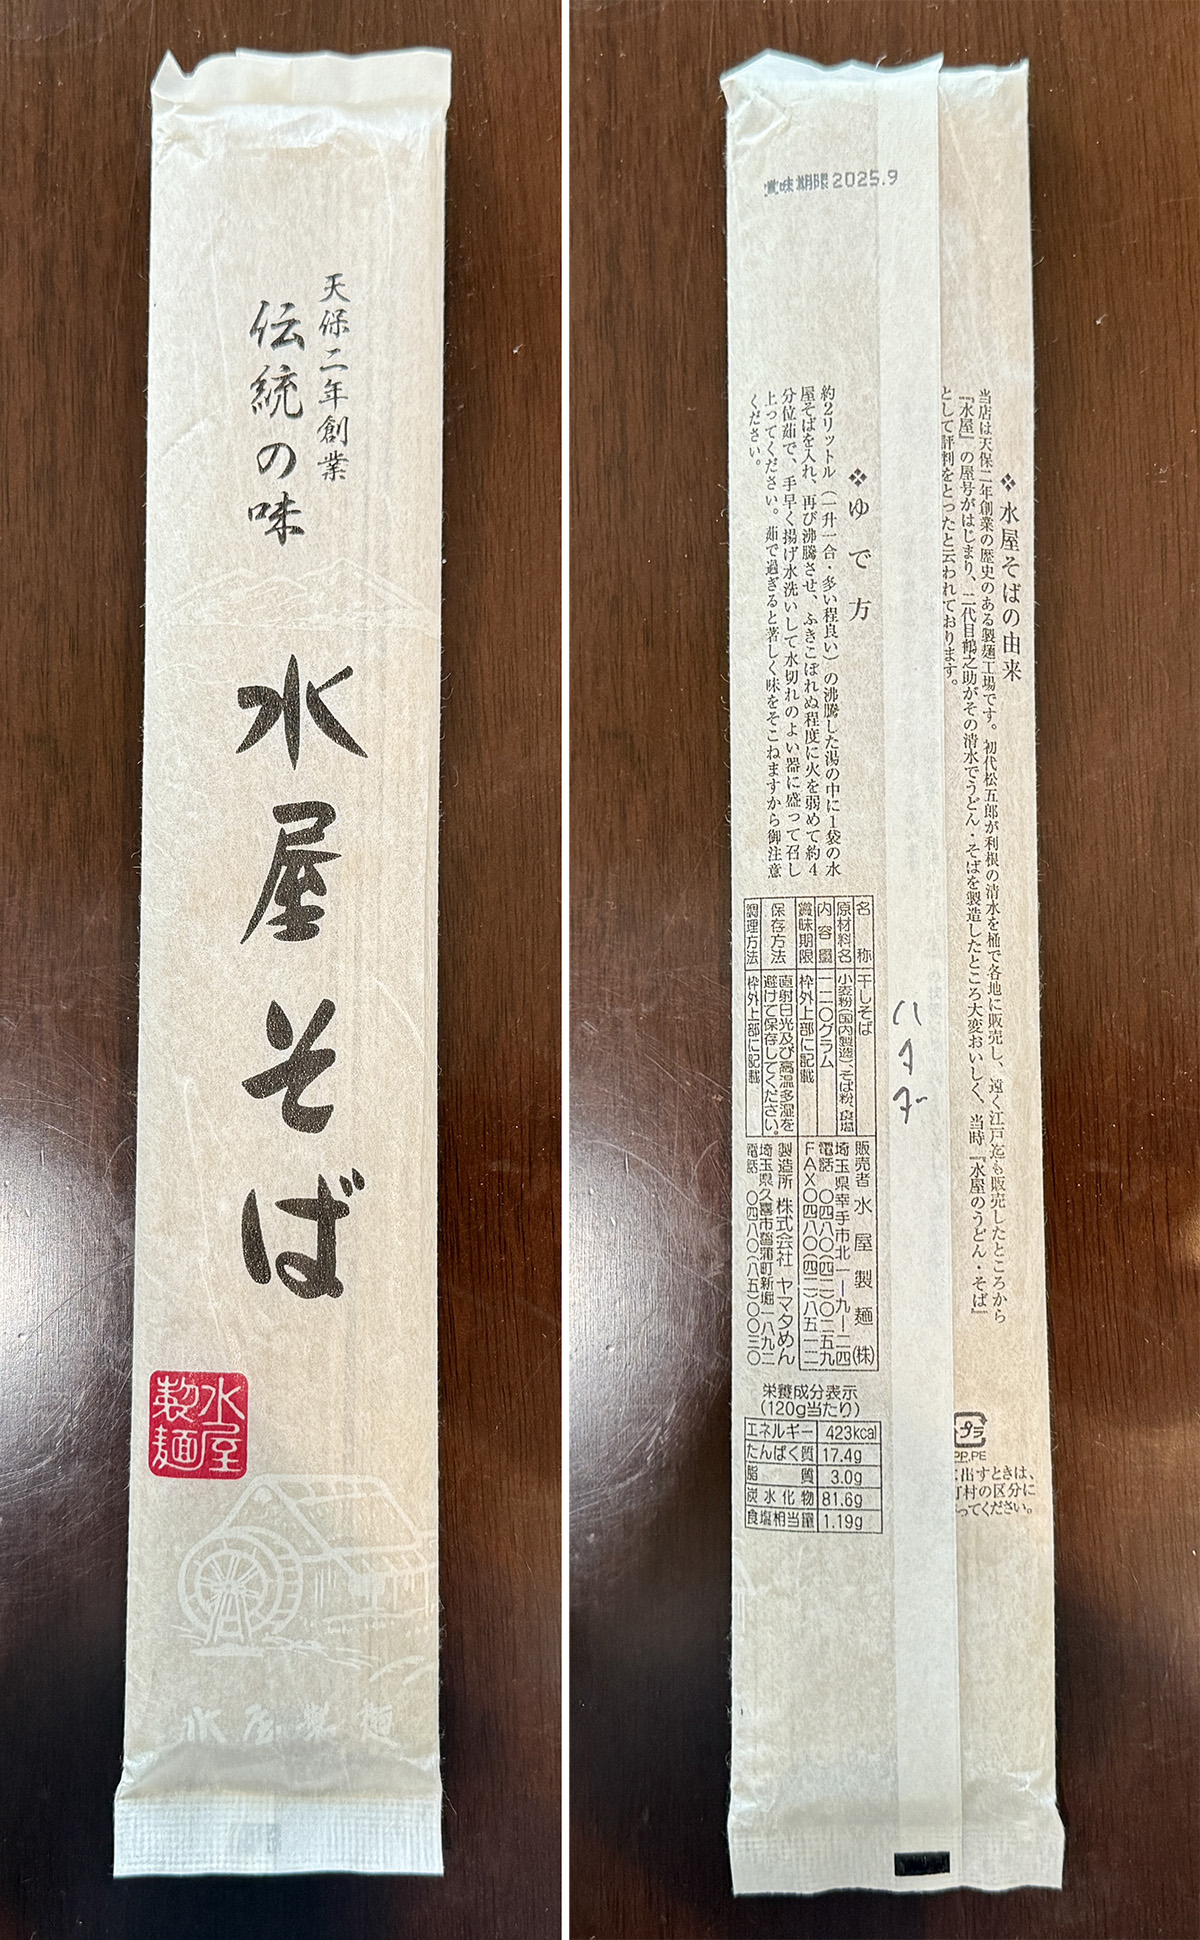 天保二年創業
伝統の味
水屋そば
水屋
製麺
水屋製麺
賞味期限 2025.9
❖水屋そばの由来
当店は天保二年創業の歴史のある製麺工場です。初代松五郎が利根の清水を桶で各地に販売し、遠く江戸迄も販売したところから
『水屋』の屋号がはじまり、二代目鶴之助がその清水でうどん・そばを製造したところ大変おいしく、当時『水屋のうどん・そば』
として評判をとったと云われております。
❖ゆで方
約2リットル（一升一合・多い程良い）の沸騰した湯の中に1袋の水
屋そばを入れ、再び沸騰させ、ふきこぼれぬ程度に火を弱めて約4
分位茹で、手早く揚げ水洗いして水切れのよい器に盛って召し
上ってください。茹で過ぎると著しく味をそこねますから御注意
ください。
名称 干しそば
原材料名 小麦粉(国内製造)、そば粉、食塩
内容量 一二〇グラム
賞味期限 枠外上部に記載
保存方法 直射日光及び高温多湿を
避けて保存してください。
調理方法 枠外上部に記載
販売者 水屋製麺(株)
埼玉県幸手市北一ー九ー二四
電話 〇四八〇(四二)〇二五九
FAX〇四八〇(四二)八五一二
製造所 株式会社 ヤマタめん
埼玉県久喜市菖蒲町新堀一八九二
電話 〇四八〇(八五)〇〇三〇
栄養成分表示
(120g当たり)
エネルギー 423kcal
たんぱく質 17.4g
脂質 3.0g
炭水化物 81.6g
食塩相当量 1.19g
プラ
PP,PE
出すときは、
町村の区分に
ってください。